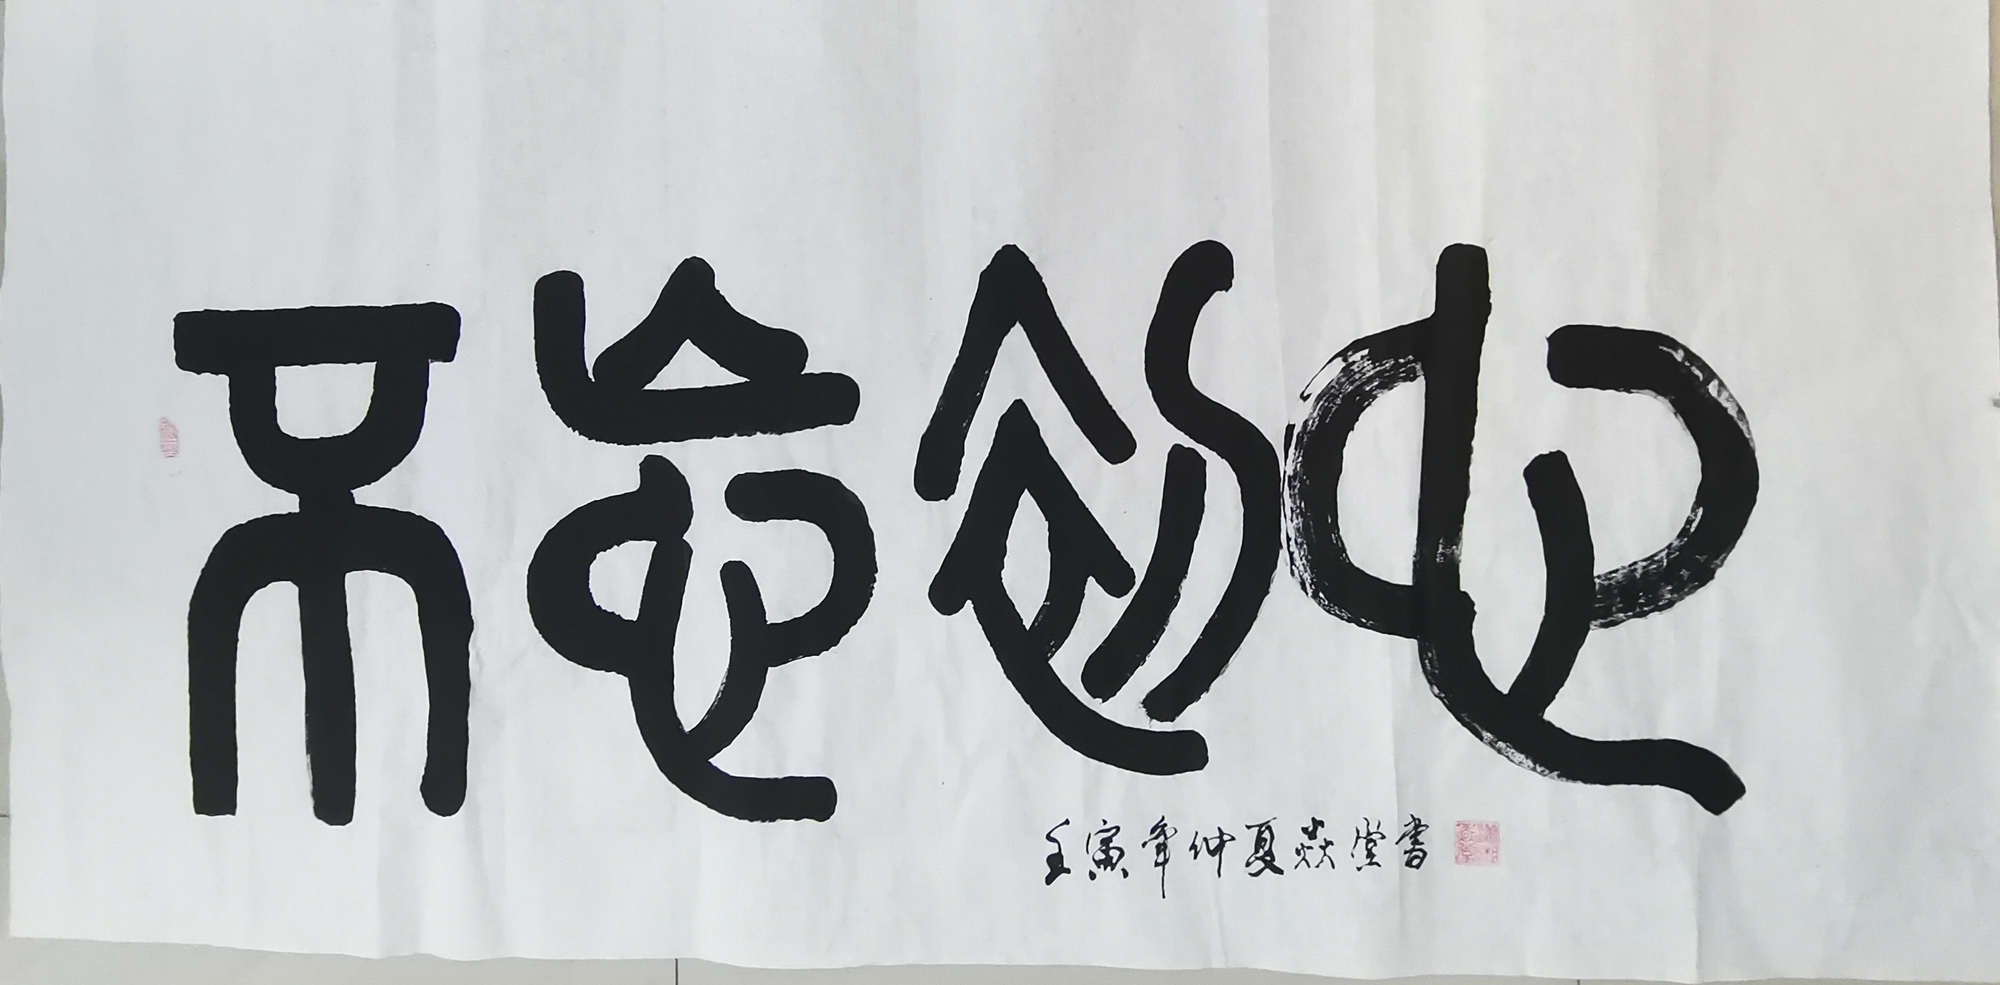 不忘初心
壬寅年仲夏焱堂書